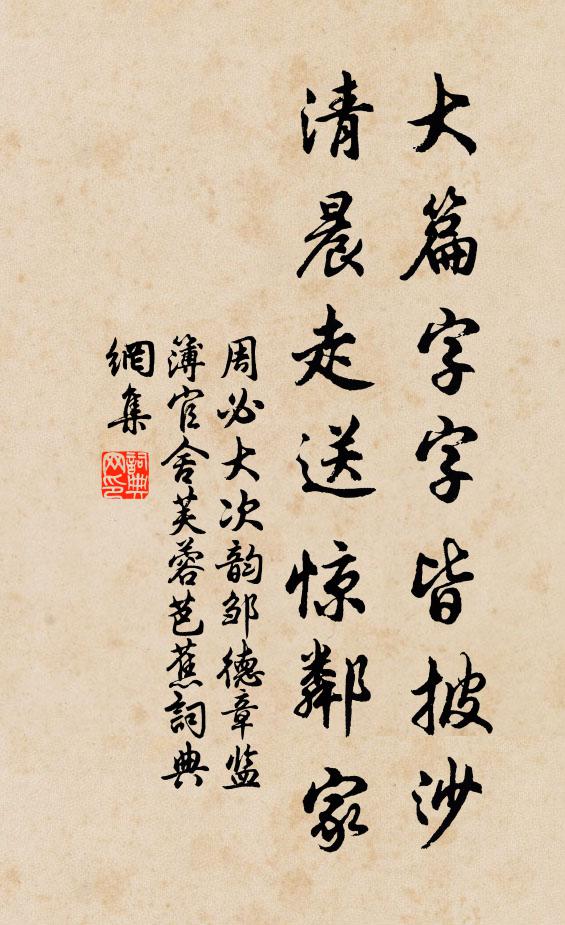 大篇字字皆披沙
清晨走送惊鄰家
周必大次韵邹德章监
簿官舍芙蓉芭蕉詞典
網集
詞典
网印